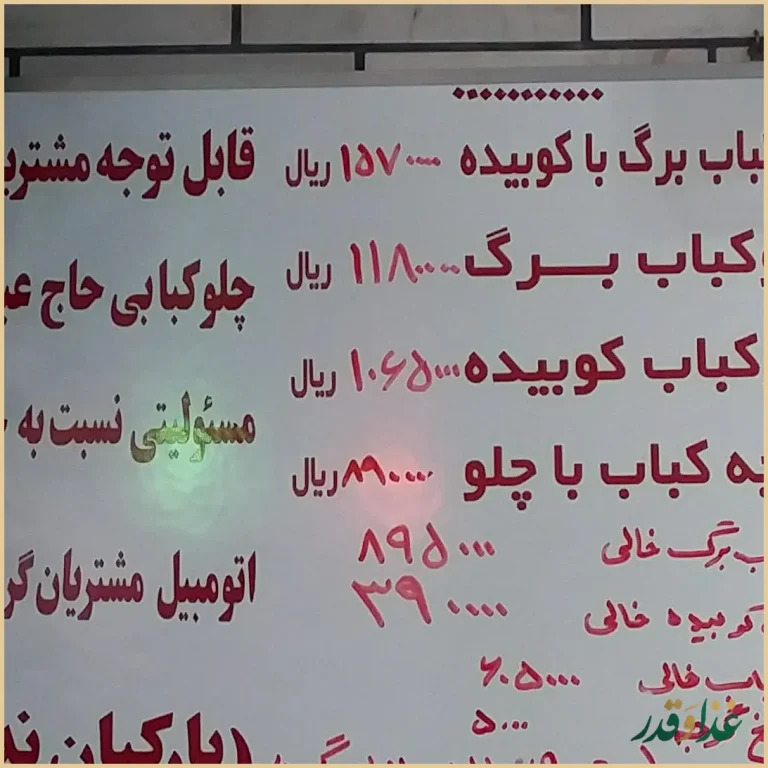 کباب برگ با کوبیده ۱۵۷۰۰۰۰ ریال
کباب برگ ۱۱۸۰۰۰۰ ریال
کباب کوبیده ۱۰۶۵۰۰۰ ریال
کباب با چلو ۸۹۰۰۰۰ ریال
برگ خالی ۸۹۵۰۰۰
کوبیده خالی ۳۹۰۰۰۰
خالی ۶۰۵۰۰۰
۵۰۰۰
قابل توجه
چلوکبابی حاج
مسئولیتی نسبت به
اتومبیل مشتریان
(پارکبان
غذا و قدر